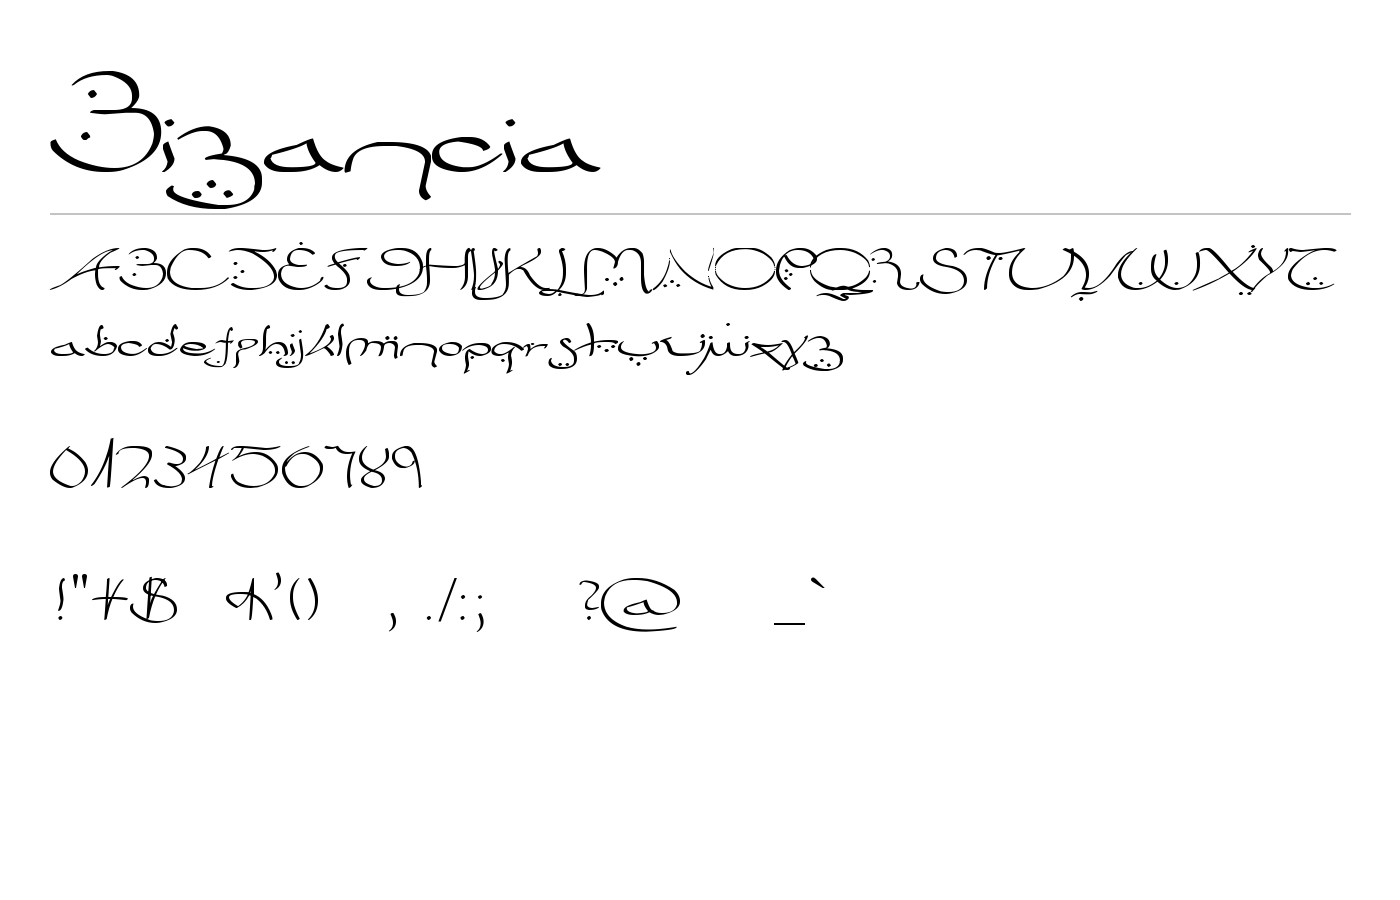 Bizancia
ABCDEFGHIJKLMNOPQRSTUVWXYZ
abcdefghijklmnopqrstuvwxyz
0123456789
!"#$ &'() , ./:; ?@ _`